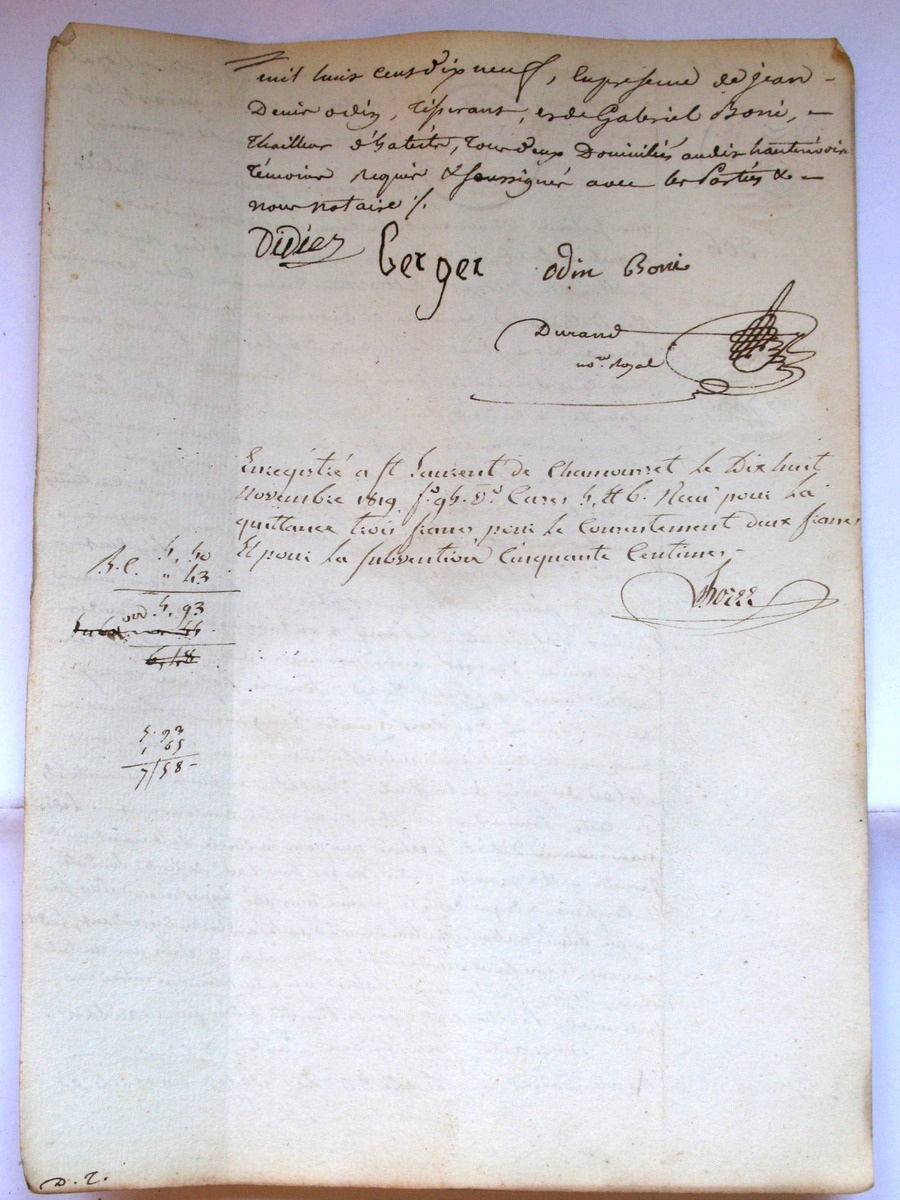 mil huit cent dix neuf, En présence de jean
Denis odin, Tisserant, et de Gabriel Boni,
thailleur d'habits, tous deux Domiciliés audit hauterivoire
témoins requis & soussignés avec les Parties &
nous notaire ./.
Didier
Berger
odin Boni
Durand
no.re Royal
Enregistré a St Laurent de Chamousset le Dix huit
novembre 1819 f.o 95. V.o Cases 5, & 6. Recu pour la
quittance trois francs, pour le Consentement deux francs
Et pour la subvention Cinquante Centimes
5, 50
" 43
5, 93
6,48
5. 93
1 65
7/58
D. T.